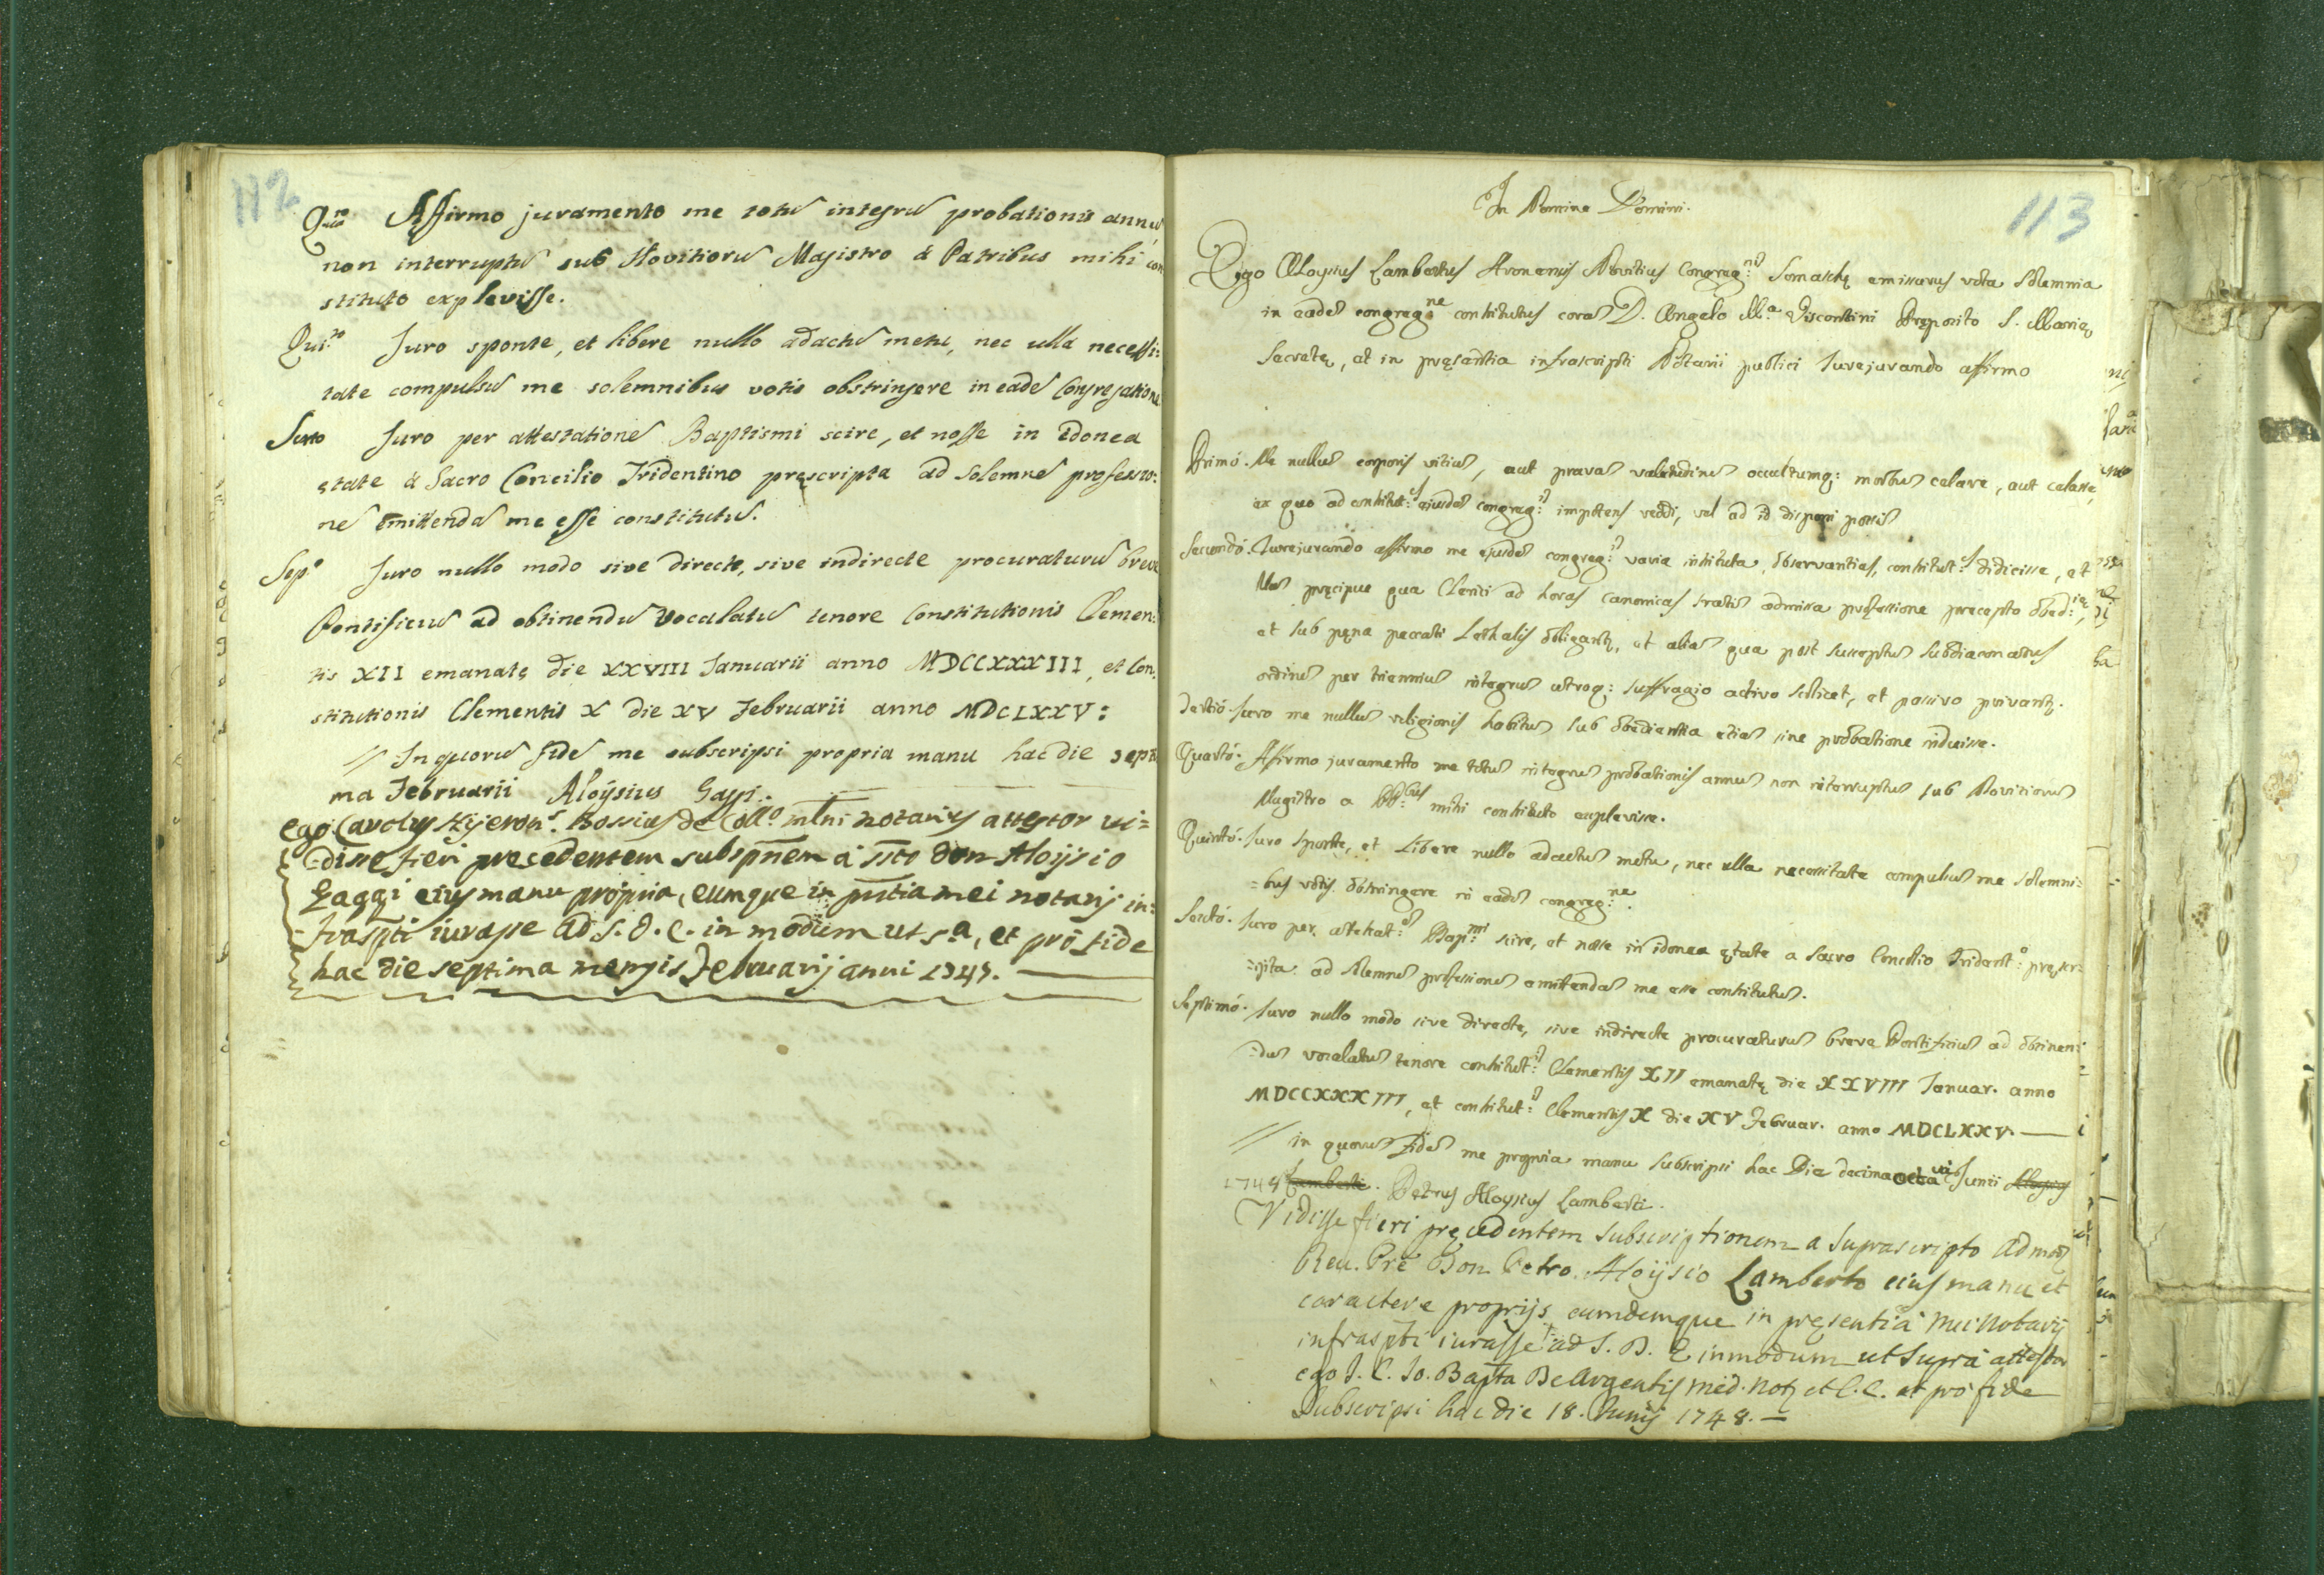 112
Q.to Affirmo juramento me totũ integrũ probationis annũ
non interruptũ sub Novitiorũ Magistro à Patribus mihi con
stituto explevisse.
Qui.to Juro sponte, et libere nullo adactũ metu, nec ulla necessi:
tate compulsũ me solemnibus votis obstringere in eadẽ Congregatione
Sexto Juro per attestationẽ Baptismi scire, et nosse in idonea
ętate à Sacro Concilio Tridentino pręscripta ad solemnẽ professio:
nẽ emittendã me esse constitutũ.
Sep.o Juro nullo modo sive directe, sive indirecte procuraturũ breve
Pontificiũ ad obtinendũ vocalatũ tenore Constitutionis Clemen:
tis XII emanatę die XXVIII Januarii anno MDCCXXXIII, et Con:
stitutionis Clementis X die XV Februarii anno MDCLXXV:
// In quorũ fidẽ me subscripsi propria manu hac die septi
ma Februarii Aloÿsius Gaggi.
ego Carolus Hyeron.s Rossius de Coll.o mlni notarius attestor vi=
=disse fieri precedentem subspñem à ssto don Aloijsio
Gaggi eius manu propria, eumque in pñtia mei notarij in=
=fraspti iurasse ad S. D. E. in modum ut s.a, et pro fide
hac die septima mensis Februarij anni 1747.
113
In Nomine Domini.
Ego Aloysius Lambertus Aronensis Novitius Congreg:nis Somaschę emissurus vota solemnia
in eadẽ congreg:ne constitutus corã D. Angelo M.a Viscontini Pręposito S. Marię
Secretę, et in pręsentia infrascripti Notarii publici Jurejurando affirmo
Primó. Me nullũ corporis vitiũ, aut pravã valetudinẽ occultumq: morbũ celare, aut celasse,
ex quo ad constitut:s ejusdẽ congreg:is impotens reddi, vel ad id disponi possis
Secundó. Jurejurando affirmo me ejusdẽ congreg:is varia instituta, observantias, constitut:s didicisse, et
illas pręcipue qua Clerici ad horas canonicas statis admissa professione precepto obed:ię,
et sub pęna peccati Lethalis obligantr, et alias qua post susceptũ subdiaconatus
ordinẽ per trienniũ integrũ utroq: suffragio activo scilicet, et passivo privantr.
Tertió. Juro me nullius religionis habitũ sub obedientia etiã sine probatione induisse.
Quartó. Affirmo juramento me totũ integrũ probationis annũ non interruptũ sub Novitiorũ
Magistro a PP:bus mihi constituto explevisse.
Quintó. Juro sponte, et libere nullo adactũ metu, nec ulla necessitate compulsũ me solemni=
=bus votis obstringere in eadẽ congreg:ne.
Sextó. Juro per attestat:ẽ Bap:mi scire, et nosse in idonea ętate a Sacro Concilio Trident:o pręscr=
=ipta ad solemnẽ professionẽ emittendã me esse constitutũ.
Septimó. Juro nullo modo sive directe, sive indirecte procuraturũ breve Pontificiũ ad obtinen=
=dũ vocalatũ tenore constitut:is Clementis XII emanatę die XXVIII Januar. anno
MDCCXXXIII, et constitut:is Clementis X die XV Februar. anno MDCLXXV.
// in quorũ fidẽ me propria manu subscripsi hac Die decima octava Junii Aloysius
1748 Lamberti. Petrus Aloysius Lamberti.
Vidisse fieri pręcedentem subscriptionem a suprascripto Admod
Reu. Pre Don Petro Aloijsio Lamberto eius manu et
caractere proprijs eumdemque in pręsentia mei Notarij
infraspti iurasse ad S. D. E. in modum ut supra attestor
ego J. C. Jo. Bapta De Argentis Med. Not et C. C. et pro fide
Subscripsi hac die 18. Junij 1748.